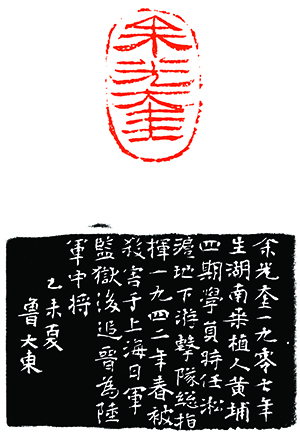 余光奎
余光奎一九零七年
生湖南桑植人黃埔
四期學員時任淞
滬地下游擊隊總指
揮一九四二年春被
殺害于上海日軍
監獄後追晉為陸
軍中将
乙未夏
魯大東